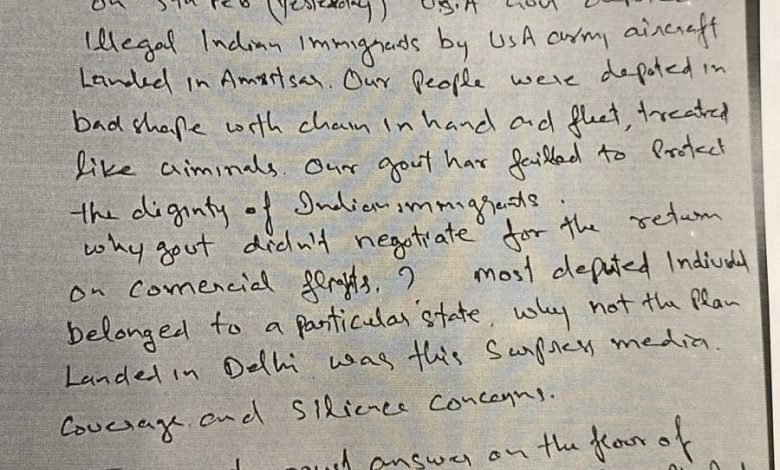 On 5th Feb (Yesterday) U.S.A Gout
Illegal Indian Immigrads by USA army aircraft
Landed in Amritsar. Our People were deputed in
bad shape with chain in hand and fleet, treated
like criminals. Our gout has failled to Protect
the diginty of Indian immigrants.
Why gout didn't negotiate for the return
on Comercial flights. ? most deputed Individul
belonged to a particular state, why not the Plan
Landed in Delhi was this Surpress media.
Coverage and Silience Concerns.
answer on the floor of